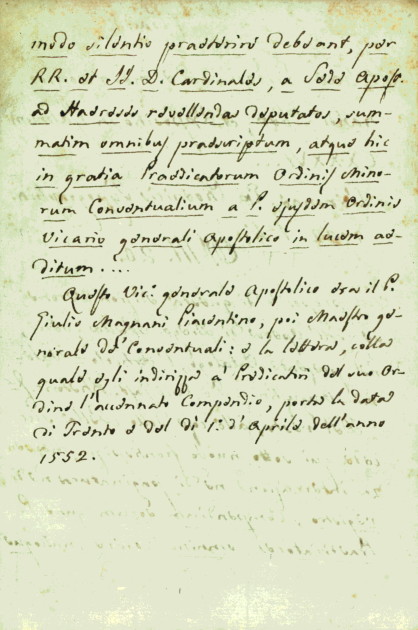 modo silentio praeterire debeant, per
RR. et Il. D. Cardinales, a Sede Apost.
ad Haereses revellendas deputatos, sum-
matim omnibus praescriptum, atque hic
in gratia Praedicatorum Ordinis Mino-
rum Conventualium a P. ejusdem Ordinis
Vicario generali Apostolico in lucem ae-
ditum....
Questo Vic.º generale Apostolico era il P.
Giulio Magnani Piacentino, poi Maestro ge-
nerale de' Conventuali: e la lettera, colla
quale egli indirizza a' Predicatori del suo Or-
dine l'accennato Compendio, porta la data
di Trento e del dì 1.º d'Aprile dell'anno
1552.